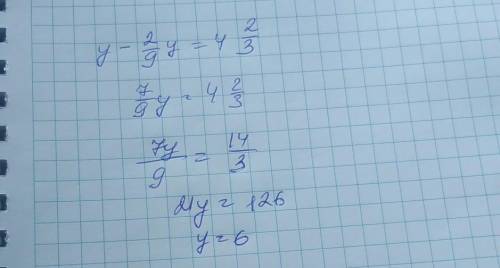 y - 2/9 y = 4 2/3
7/9 y = 4 2/3
7y/9 = 14/3
21y = 126
y = 6